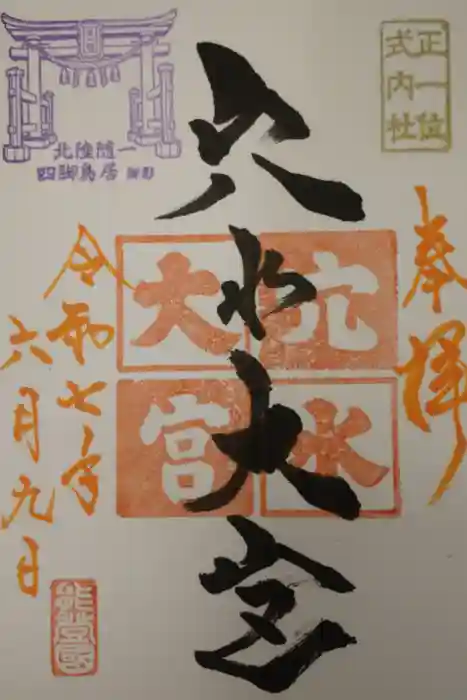 正一位
式内社
奉拝
穴水大宮
穴水
大宮
北陸随一
四脚鳥居
令和七年
六月九日
能登国